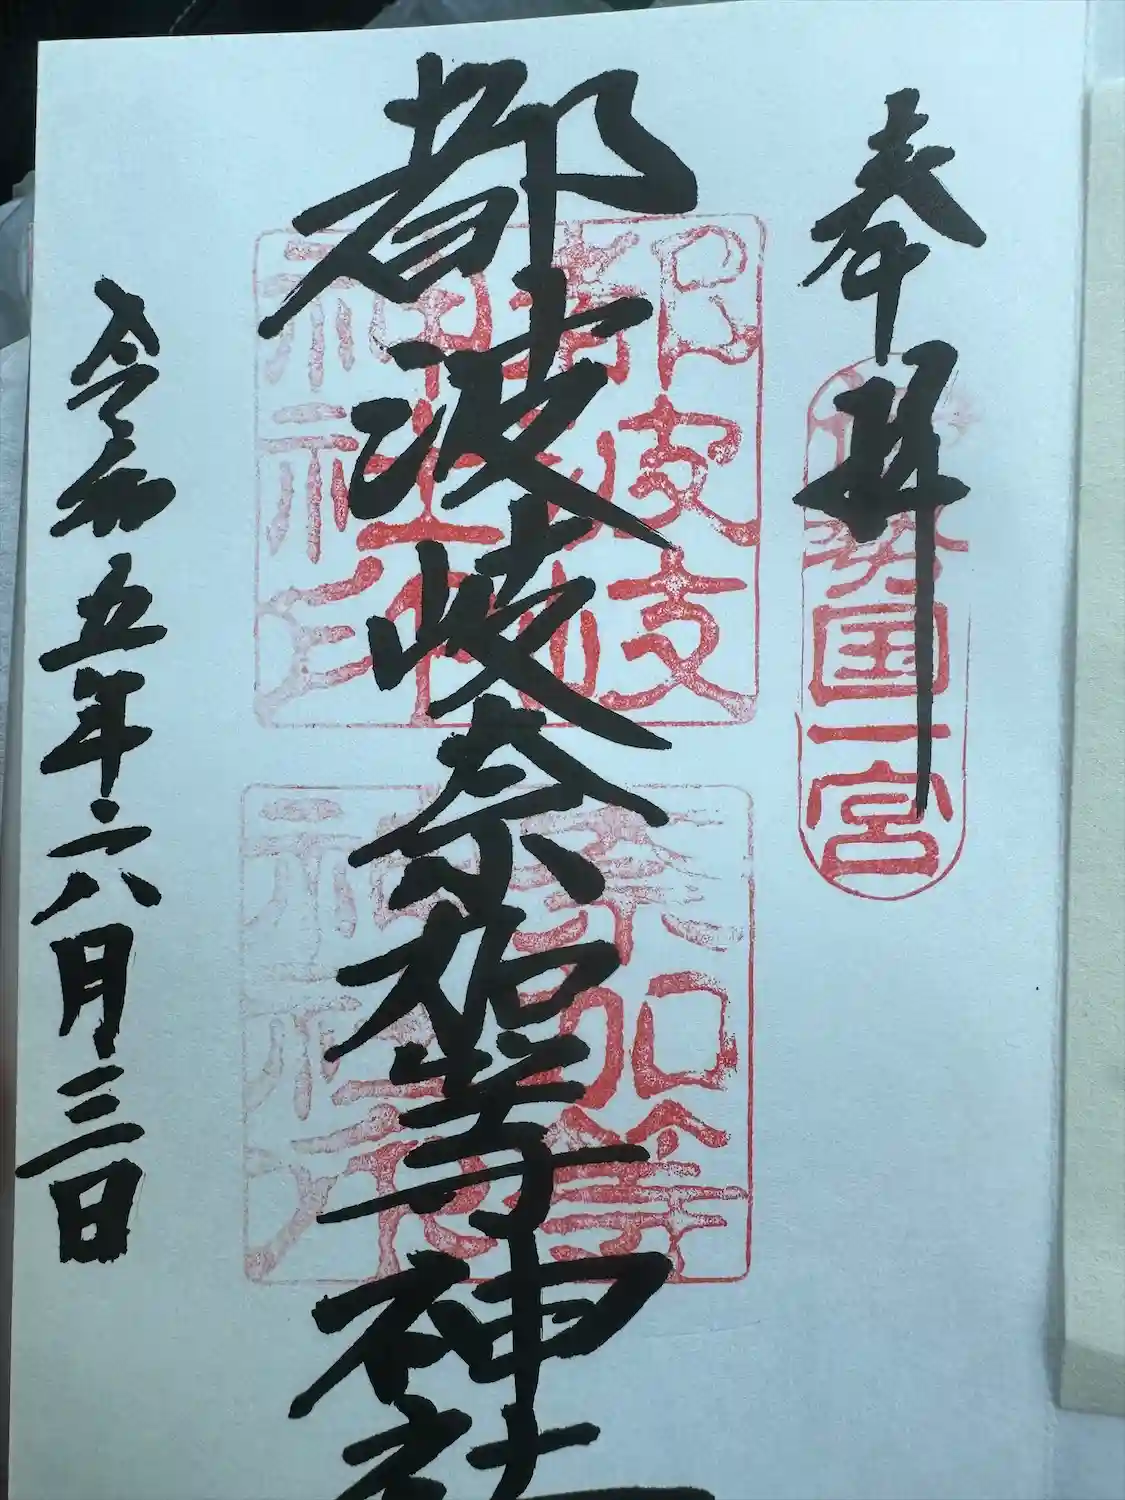 奉拝
伊勢国一宮
都波岐奈加等神社
都波岐
神社印
奈加等
神社印
令和五年六月三日